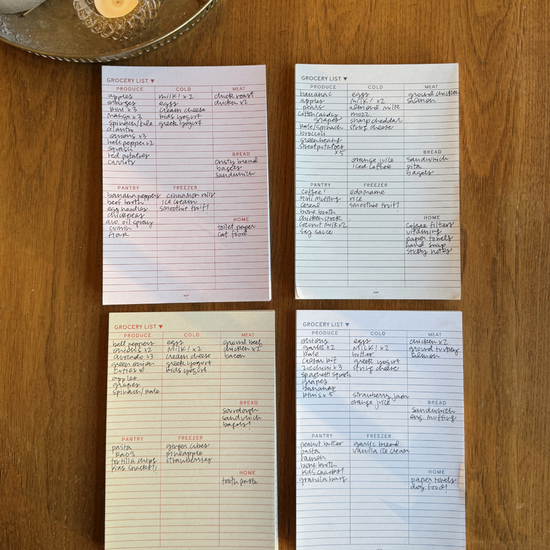 GROCERY LIST ▼
PRODUCE COLD MEAT
apples milk! x2 chuck roast
oranges eggs chicken x2
kiwi x3 cream cheese
mango x3 kids yogurt
spinach/kale greek yogurt
cilantro
onions x3
bell pepper x2
squash
red potatoes
carrots
BREAD
crusty bread
bagels
sandwich
PANTRY FREEZER
banana peppers cinnamon rolls
beef broth ice cream
egg noodles smoothie fruit!
chickpeas
avo. oil spray
cumin
flour
HOME
toilet paper
cat food
GROCERY LIST ▼
PRODUCE COLD MEAT
bananas eggs ground chicken
apples milk! x2 salmon
pears almond milk
cotton candy mozz
grapes sharp cheddar
kale/spinach string cheese
broccoli
green beans
sweet potatoes
x5
BREAD
orange juice sandwich
iced coffee pita
bagels
PANTRY FREEZER
coffee! edamame
mini muffins rice
cereal smoothie fruit!
bone broth
chicken stock
coconut milk x2
soy sauce
HOME
coffee filters
vitamins
paper towels
hand soap
sticky notes
GROCERY LIST ▼
PRODUCE COLD MEAT
bell peppers eggs ground beef
milk! x2 chicken x2
avocado x3 cream cheese bacon
green onion greek yogurt
kids yogurt
apples
grapes
spinach/kale
BREAD
sourdough
sandwich
bagels!
PANTRY FREEZER
pasta ginger cubes
pineapple
tortilla chips strawberries
kids snacks!
HOME
tooth paste
GROCERY LIST ▼
PRODUCE COLD MEAT
onions eggs chicken x2
garlic x2 milk! x2 ground turkey
kale butter salmon
greek yogurt
zucchini x3 string cheese
spaghetti squash
grapes
bananas
x5 strawberry jam
orange juice
BREAD
sandwich
eng. muffins
PANTRY FREEZER
peanut butter garlic bread
pasta vanilla ice cream
bone broth
kids
granola bars
HOME
paper towels
dog food!